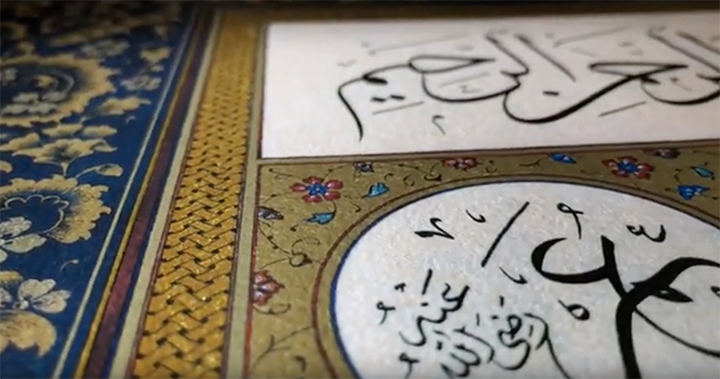 الرحمن الرحيم
رضي الله عنه